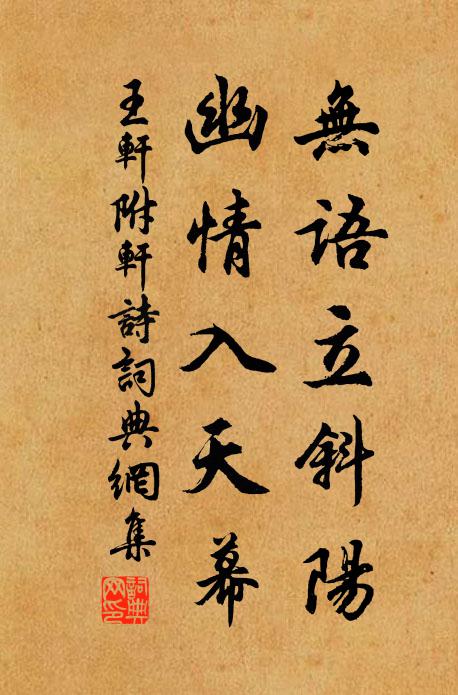 無語立斜陽
幽情入天幕
王軒附軒詩詞典網集
詞典网印